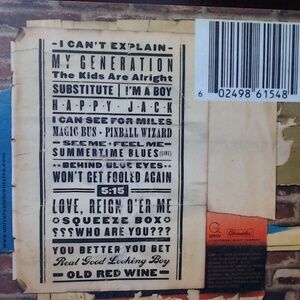 - I CAN'T EXPLAIN -
MY GENERATION
The Kids Are Alright
SUBSTITUTE I'M A BOY
HAPPY JACK
I CAN SEE FOR MILES
MAGIC BUS · PINBALL WIZARD
SEE ME · FEEL ME
SUMMERTIME BLUES (LIVE)
BEHIND BLUE EYES
WON'T GET FOOLED AGAIN
5:15
LOVE, REIGN O'ER ME
SQUEEZE BOX
???WHO ARE YOU???
YOU BETTER YOU BET
Real Good Looking Boy
- OLD RED WINE -
6 02498 61548